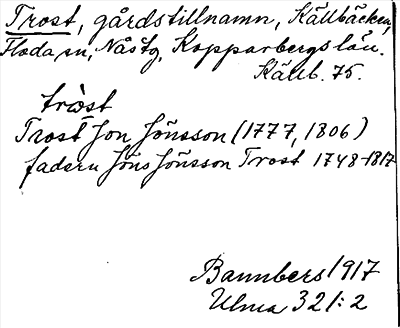 Trost, gårdstillnamn, Källbäcken,
Floda sn, Nås tg, Kopparbergs län.
Källb. 75.
tròst
Trost Jon Jönsson (1777, 1806)
fadern Jöns Jönsson Trost 1748-1817
Bannbers 1917
Ulma 321:2